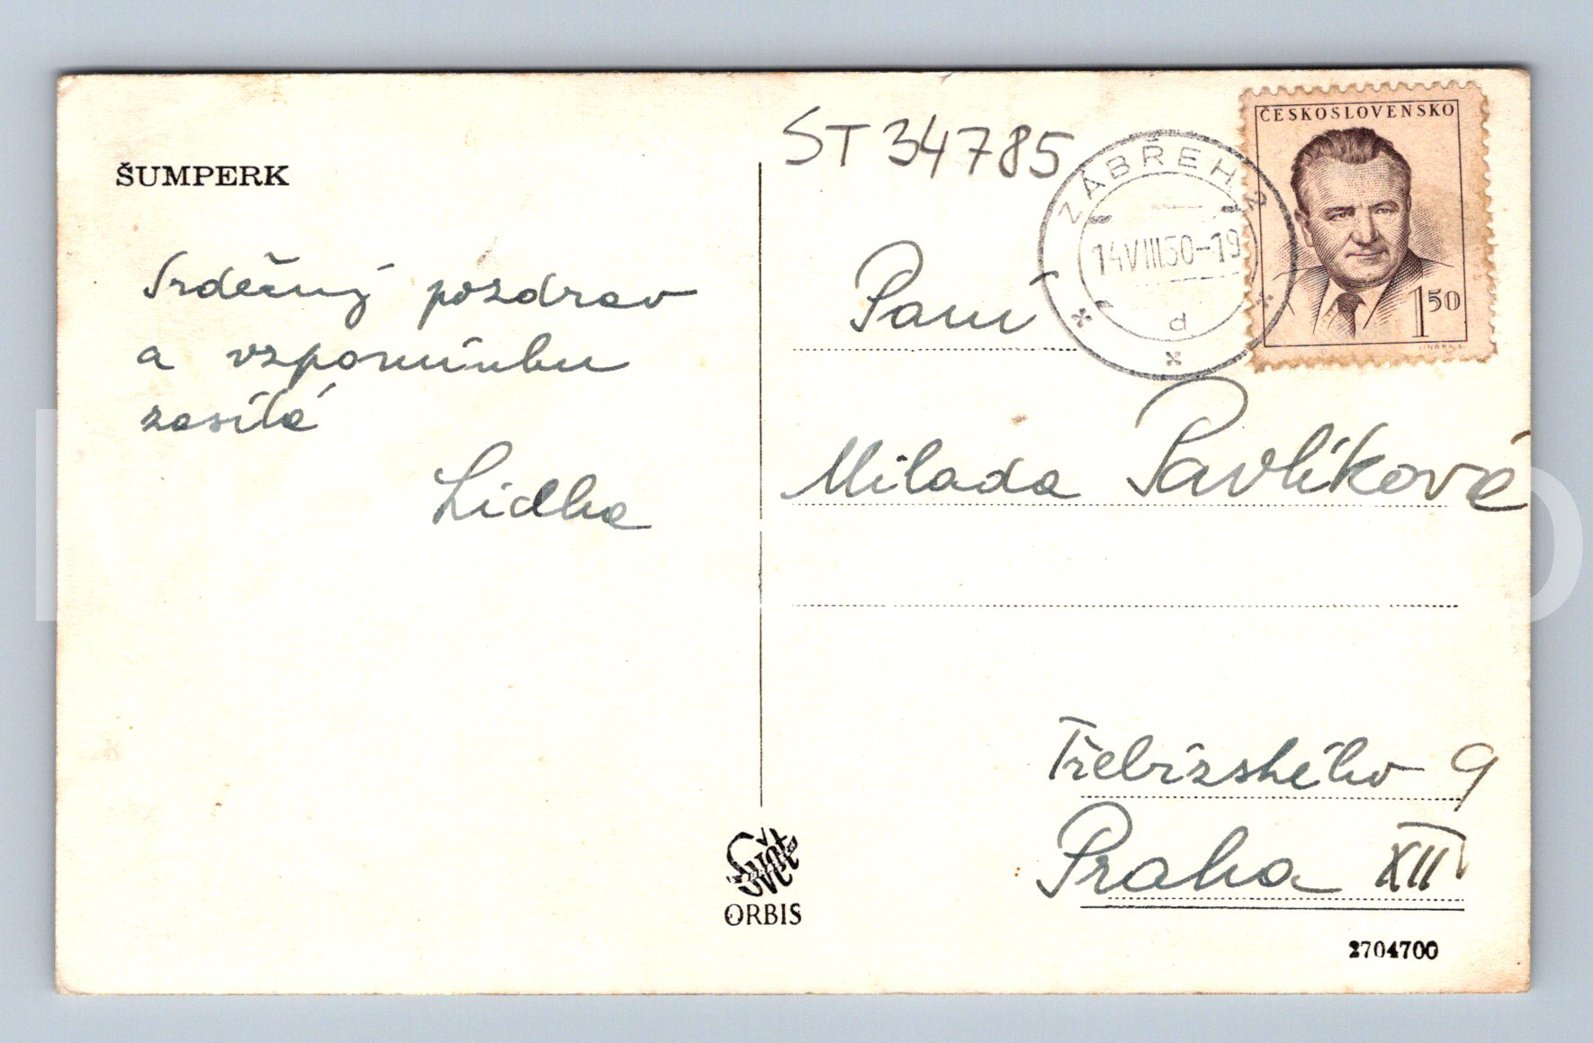 ŠUMPERK
Srdečný pozdrav
a vzpomínku
zasílá
Lidka
ST 34785
ZÁBŘEH 2
14VIII50-19
d
ČESKOSLOVENSKO
1 50
Paní
Milada Pavlíková
Třebízského 9
Praha XII
Svět
ORBIS
2704700